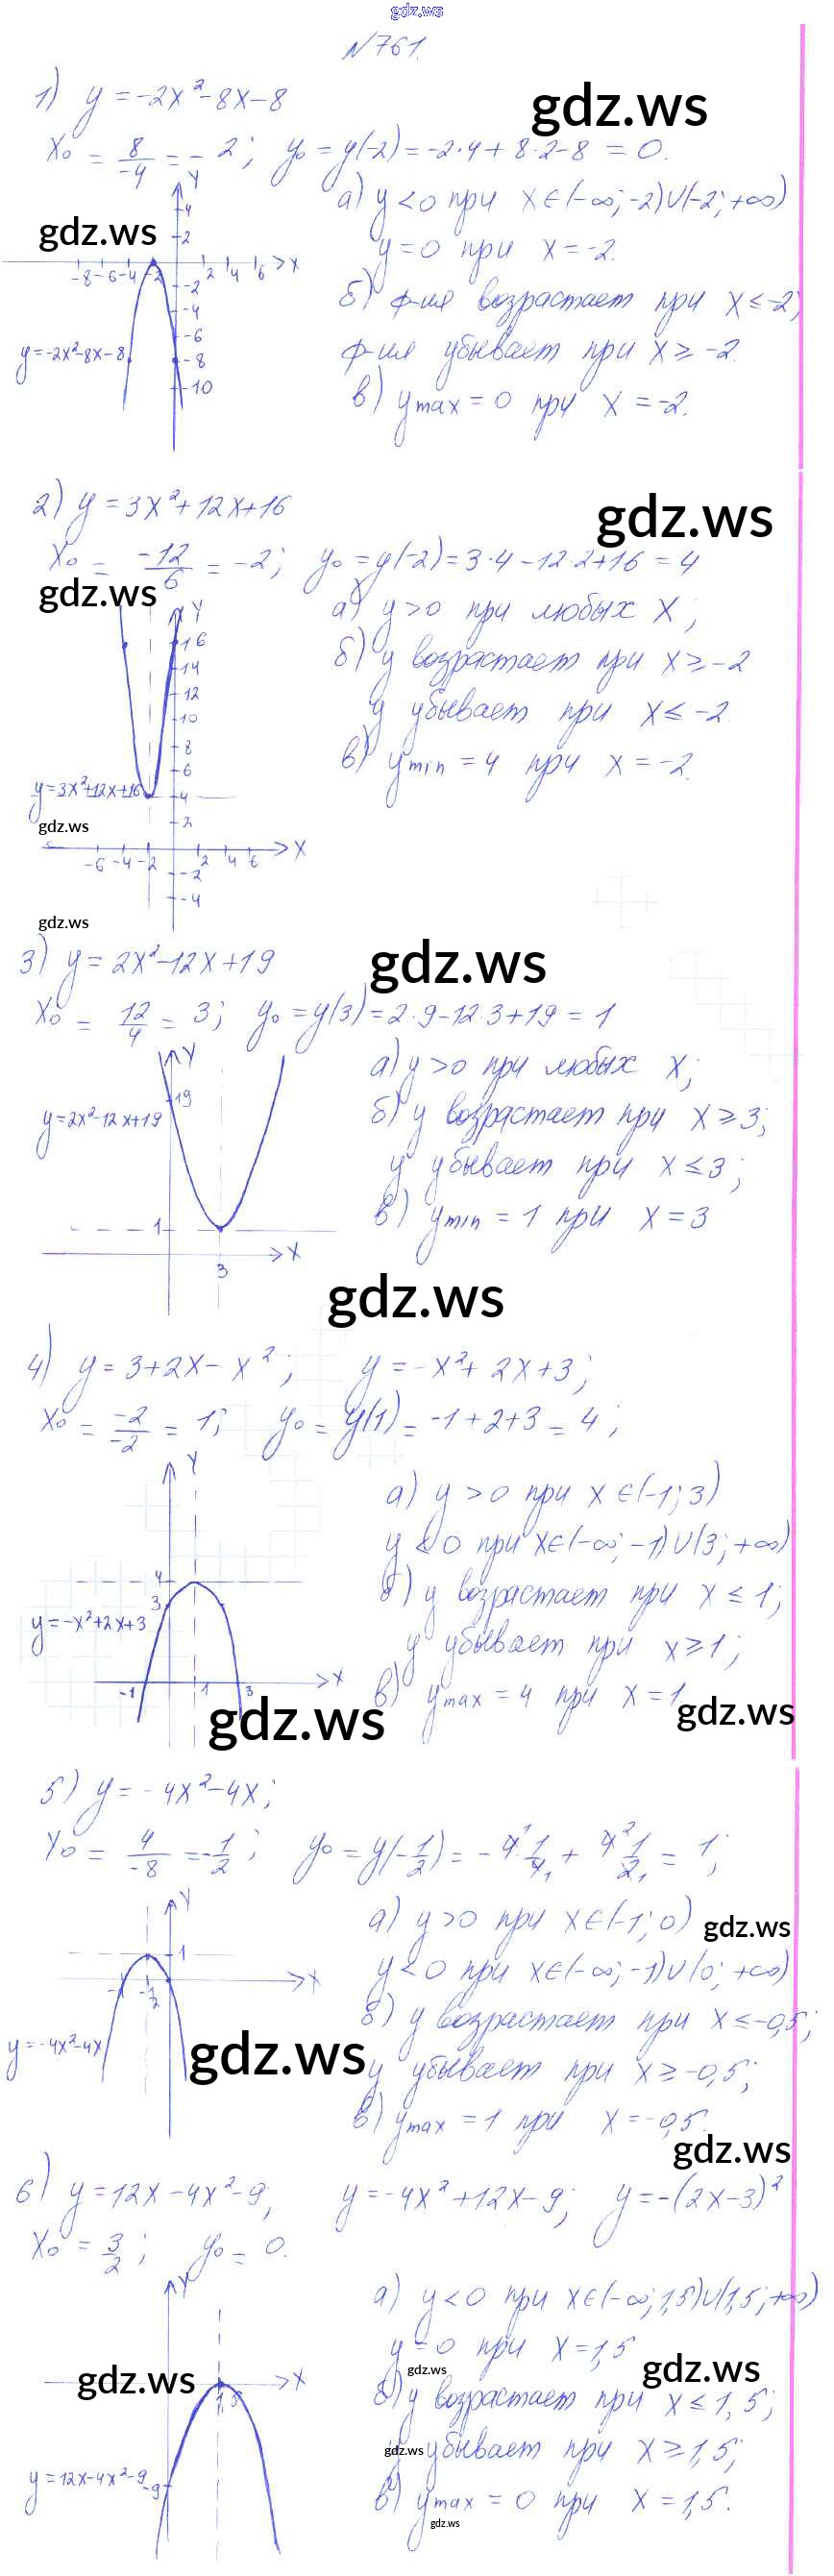 gdz.ws
№761.
1) y = -2x² - 8x - 8
gdz.ws
x₀ = 8/-4 = -2; y₀ = y(-2) = -2·4 + 8·2 - 8 = 0.
а) y < 0 при x ∈ (-∞; -2) ∪ (-2; +∞)
gdz.ws
y = 0 при x = -2.
б) ф-ия возрастает при x ≤ -2;
ф-ия убывает при x ≥ -2.
в) y max = 0 при x = -2.
Y
4
2
-8 -6 -4 -2 2 4 6 X
-2
-4
-6
y = -2x² - 8x - 8
-8
-10
2) y = 3x² + 12x + 16
gdz.ws
x₀ = -12/6 = -2; y₀ = y(-2) = 3·4 - 12·2 + 16 = 4
gdz.ws
а) y > 0 при любых x;
б) y возрастает при x ≥ -2
y убывает при x ≤ -2.
в) y min = 4 при x = -2.
Y
16
14
12
10
8
6
y = 3x² + 12x + 16
4
2
gdz.ws
-6 -4 -2 2 4 6 X
-2
-4
gdz.ws
3) y = 2x² - 12x + 19
gdz.ws
x₀ = 12/4 = 3; y₀ = y(3) = 2·9 - 12·3 + 19 = 1
а) y > 0 при любых x;
б) y возрастает при x ≥ 3;
y убывает при x ≤ 3;
в) y min = 1 при x = 3
Y
19
y = 2x² - 12x + 19
1
X
3
gdz.ws
4) y = 3 + 2x - x²; y = -x² + 2x + 3;
x₀ = -2/-2 = 1; y₀ = y(1) = -1 + 2 + 3 = 4;
а) y > 0 при x ∈ (-1; 3)
y < 0 при x ∈ (-∞; -1) ∪ (3; +∞)
б) y возрастает при x ≤ 1;
y убывает при x ≥ 1;
в) y max = 4 при x = 1
gdz.ws
Y
4
3
y = -x² + 2x + 3
-1 1 3 X
gdz.ws
5) y = -4x² - 4x;
x₀ = 4/-8 = -1/2; y₀ = y(-1/2) = -4·1/4 + 4·1/2 = 1;
а) y > 0 при x ∈ (-1; 0)
gdz.ws
y < 0 при x ∈ (-∞; -1) ∪ (0; +∞)
б) y возрастает при x ≤ -0,5;
y убывает при x ≥ -0,5;
в) y max = 1 при x = -0,5.
Y
1
-1 -1/2 X
y = -4x² - 4x
gdz.ws
gdz.ws
6) y = 12x - 4x² - 9; y = -4x² + 12x - 9; y = -(2x - 3)²
x₀ = 3/2; y₀ = 0.
а) y < 0 при x ∈ (-∞; 1,5) ∪ (1,5; +∞)
y = 0 при x = 1,5
gdz.ws
gdz.ws
б) y возрастает при x ≤ 1,5;
gdz.ws
y убывает при x ≥ 1,5;
в) y max = 0 при x = 1,5.
gdz.ws
Y
gdz.ws
X
1,5
y = 12x - 4x² - 9
-9